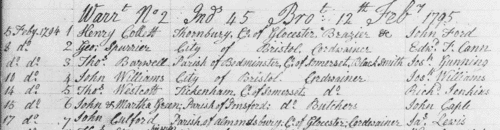 Warr.t No 2 Ind.s 45 Bro.t 12.th Feb.y 1795
5 Feby. 1794 1 Henry Collett Thornbury, C.o of Glocester Brazier &c John Ford
8 d.o 2 Geo.e Spurrier City of Bristol Cordwainer Edw.d F. Cann
d.o d.o 3 Tho.s Barwell Parish of Bedminster, C.o of Somerset, Black Smith Jos.h Gunning
10 d.o 4 John Williams City of Bristol Cordwainer Jos.h Williams
14 d.o 5 Tho.s Westcott Tickenham, C.o of Somerset d.o Rich.d Jenkins
16 d.o 6 John & Martha Green, Parish of Publow d.o Butchers John Cople
17 d.o 7 John Culford Parish of almondsbury, C.o of Glocester, Cordwainer Ja.s Lewis